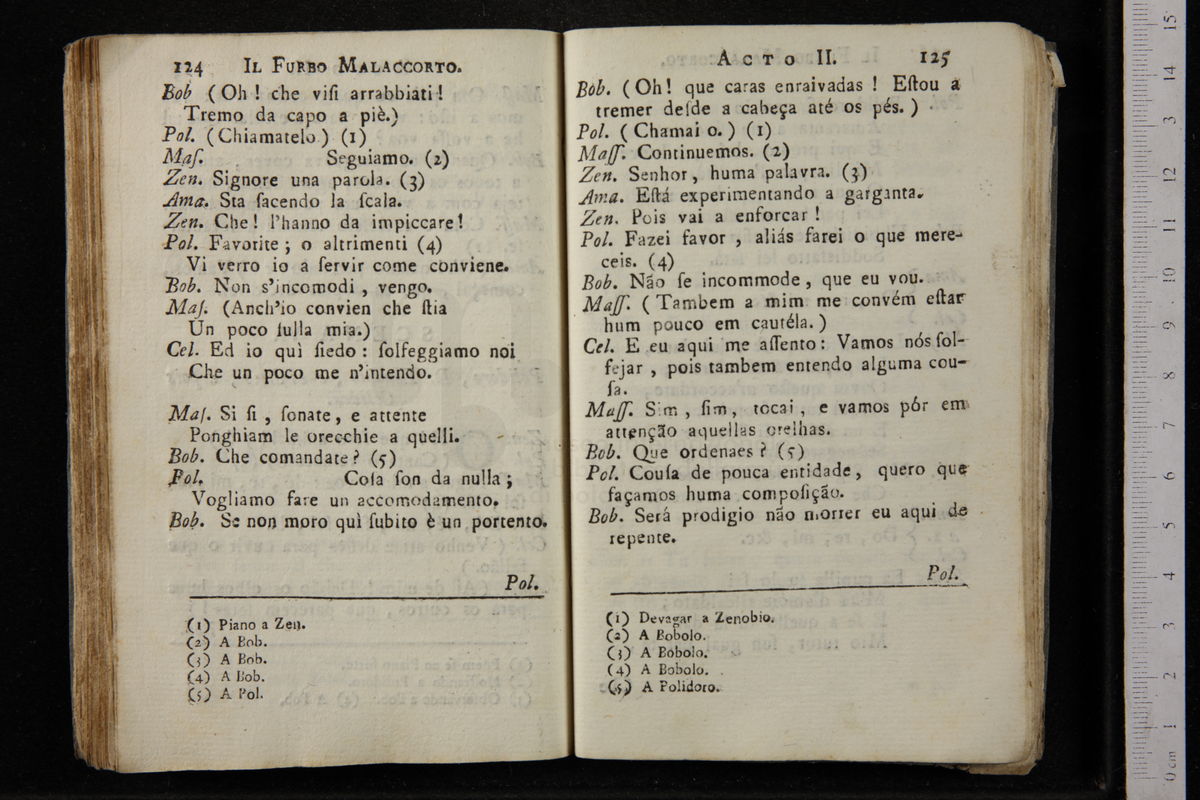 124 IL FURBO MALACCORTO.
Bob (Oh! che viſi arrabbiati!
Tremo da capo a piè.)
Pol. (Chiamatelo.) (1)
Maſ. Seguiamo. (2)
Zen. Signore una parola. (3)
Ama. Sta facendo la ſcala.
Zen. Che! l'hanno da impiccare!
Pol. Favorite; o altrimenti (4)
Vi verro io a ſervir come conviene.
Bob. Non s'incomodi, vengo.
Maſ. (Anch'io convien che ſtia
Un poco ſulla mia.)
Cel. Ed io quì ſiedo: ſolfeggiamo noi
Che un poco me n'intendo.
Maſ. Si ſi, ſonate, e attente
Ponghiam le orecchie a quelli.
Bob. Che comandate? (5)
Pol. Coſa ſon da nulla;
Vogliamo fare un accomodamento.
Bob. Se non moro quì ſubito è un portento.
Pol.
(1) Piano a Zen.
(2) A Bob.
(3) A Bob.
(4) A Bob.
(5) A Pol.
ACTO II. 125
Bob. (Oh! que caras enraivadas! Eſtou a
tremer deſde a cabeça até os pés.)
Pol. (Chamai o.) (1)
Maſſ. Continuemos. (2)
Zen. Senhor, huma palavra. (3)
Ama. Eſtá experimentando a garganta.
Zen. Pois vai a enforcar!
Pol. Fazei favor, aliás farei o que mere-
ceis. (4)
Bob. Não ſe incommode, que eu vou.
Maſſ. (Tambem a mim me convém eſtar
hum pouco em cautéla.)
Cel. E eu aqui me aſſento: Vamos nós ſol-
fejar, pois tambem entendo alguma cou-
ſa.
Maſſ. Sim, ſim, tocai, e vamos pôr em
attenção aquellas orelhas.
Bob. Que ordenaes? (5)
Pol. Couſa de pouca entidade, quero que
façamos huma compoſição.
Bob. Será prodigio não morrer eu aqui de
repente.
Pol.
(1) Devagar a Zenobio.
(2) A Bobolo.
(3) A Bobolo.
(4) A Bobolo.
(5) A Polidoro.
0 cm 1 2 3 4 5 6 7 8 9 10 11 12 13 14 15